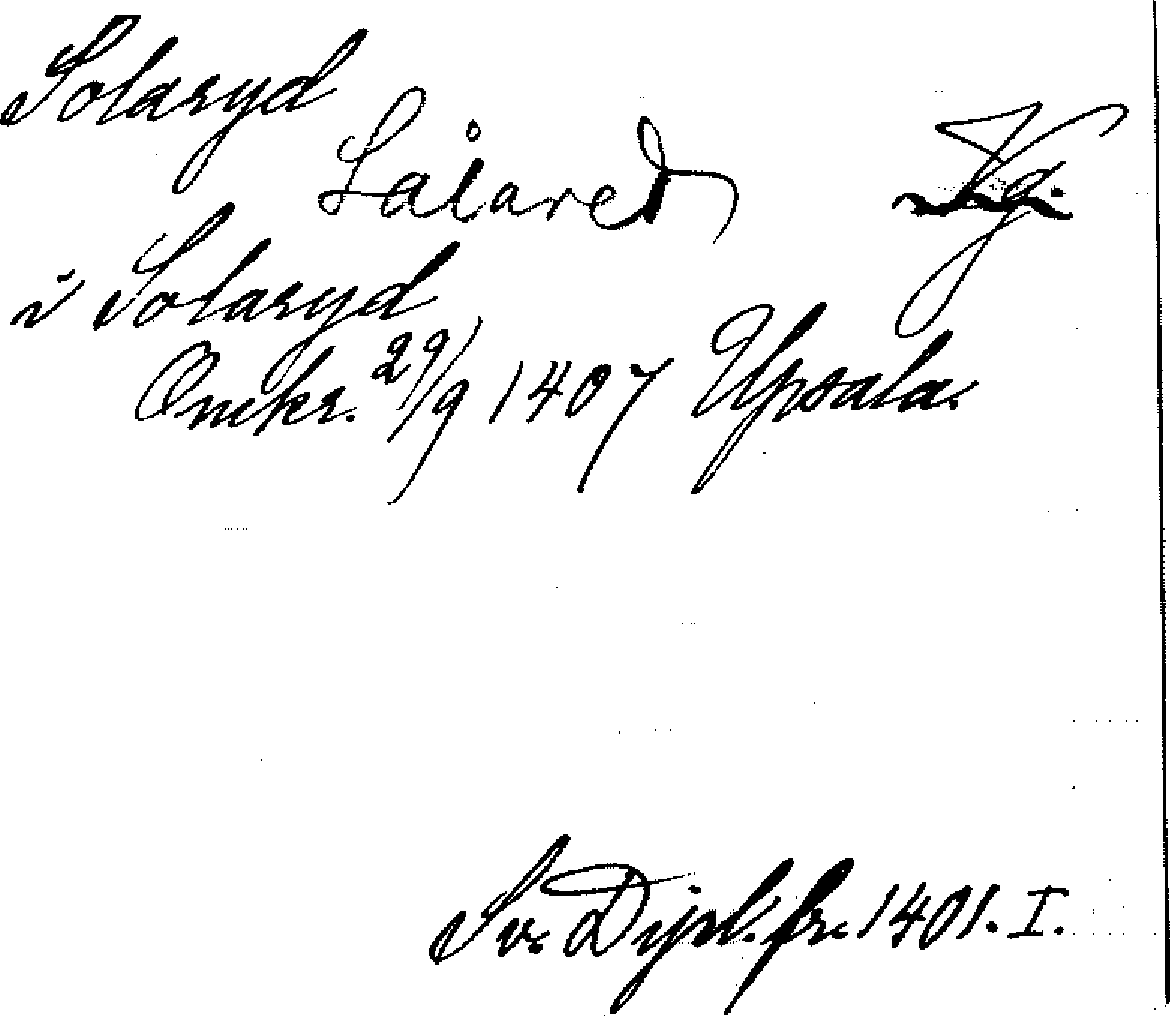 Solaryd
Vg.
i Solaryd
Omkr. 29/9 1407 Upsala.
Sv. Dipl. fr. 1401. I.